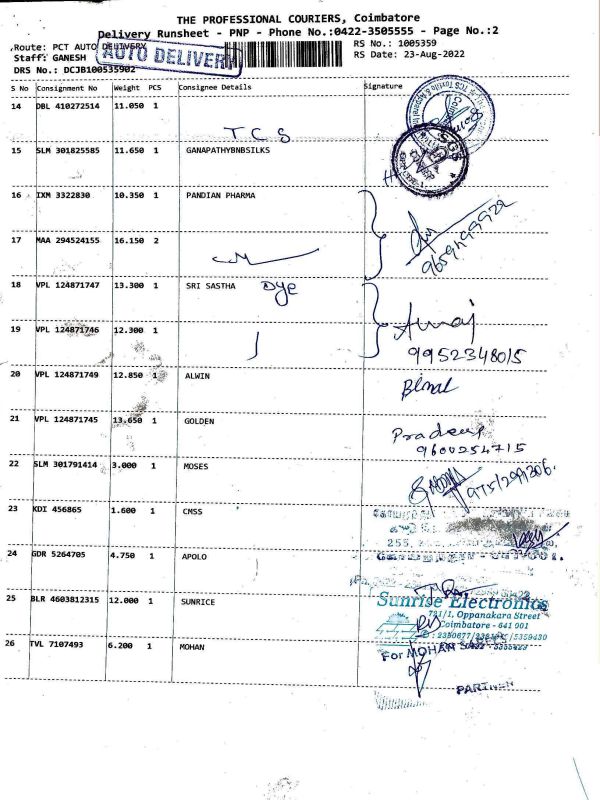 THE PROFESSIONAL COURIERS, Coimbatore
Delivery Runsheet - PNP - Phone No.:0422-3505555 - Page No.:2
Route: PCT AUTO DELIVERY
AUTO DELIVERY
RS No.: 1005359
Staff: GANESH
RS Date: 23-Aug-2022
DRS No.: DCJB100535902
S No Consignment No Weight PCS Consignee Details Signature
14 DBL 410272514 11.050 1
TCS
15 SLM 301825585 11.650 1 GANAPATHYBNBSILKS
SGS
16 IXM 3322830 10.350 1 PANDIAN PHARMA
17 MAA 294524155 16.150 2
18 VPL 124871747 13.300 1 SRI SASTHA Dye
19 VPL 124871746 12.300 1
9952348015
20 VPL 124871749 12.850 1 ALWIN
21 VPL 124871745 13.650 1 GOLDEN
Pradeep
9600254715
22 SLM 301791414 3.000 1 MOSES
23 KDI 456865 1.600 1 CMSS
24 GDR 5264705 4.750 1 APOLO
25 BLR 4603812315 12.000 1 SUNRICE
Sunrise Electronics
731/1, Oppanakara Street
Coimbatore - 641 001
26 TVL 7107493 6.200 1 MOHAN
For MOHAN
PARTNER